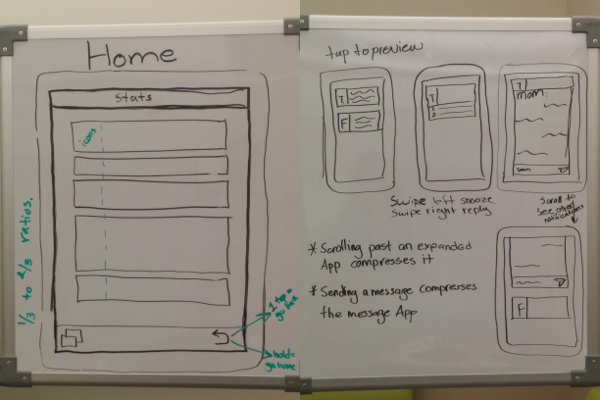 Home
Stats
icons
1/3 to 2/3 ratios.
1 tap =
go back
hold =
go home
tap to preview
T
F
T
T
mom:
Swipe left snooze
Swipe right reply
Scroll to
see other
notifications
* Scrolling past an expanded
App compresses it
* Sending a message compresses
the message App
F